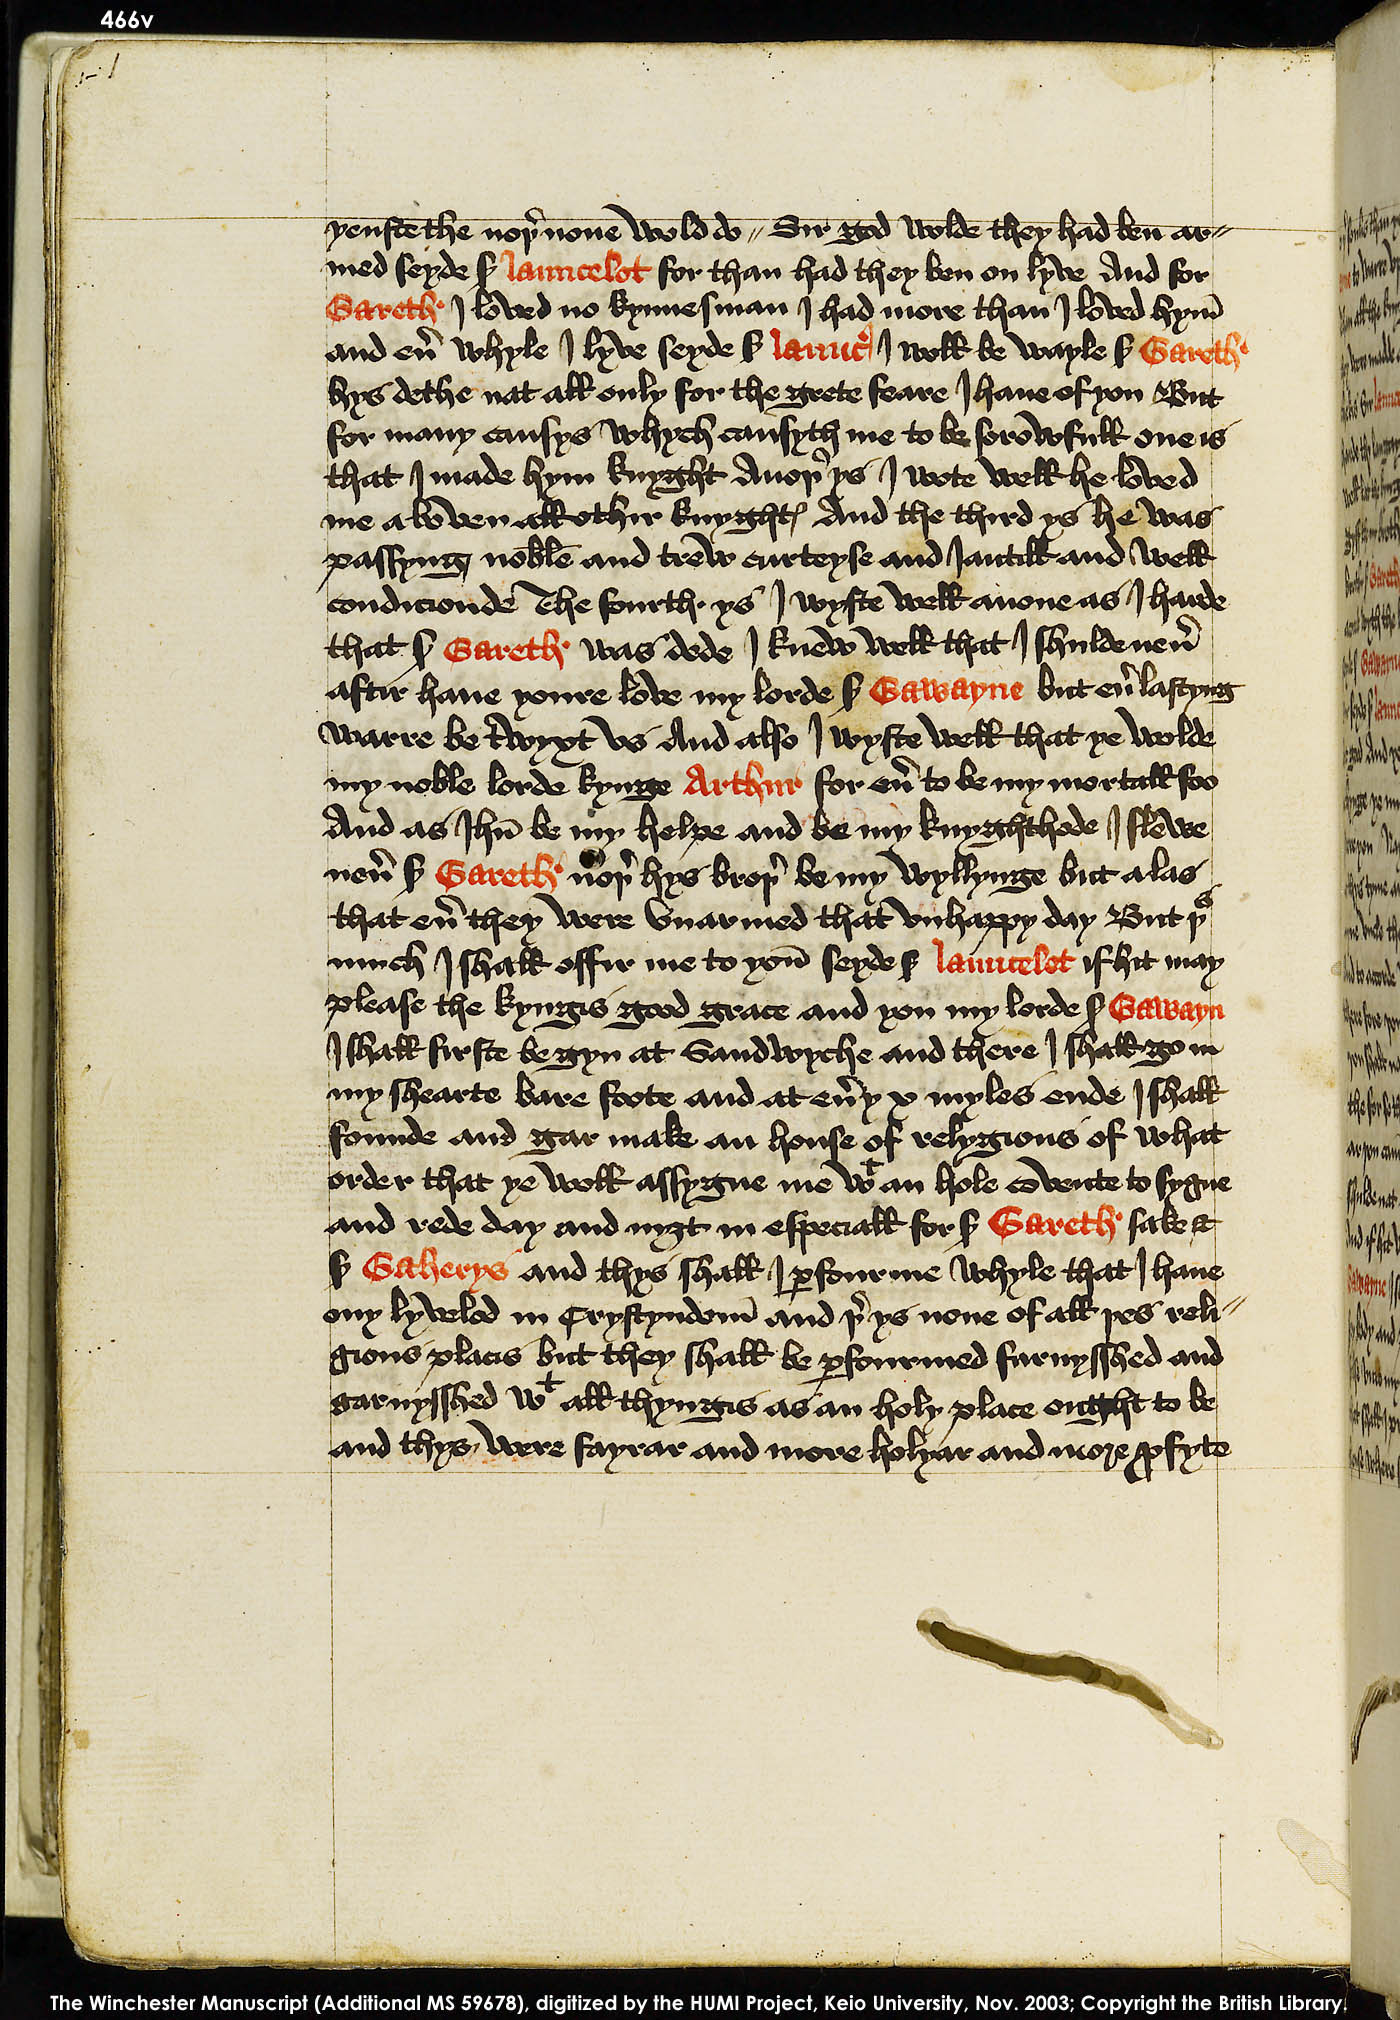 466v
yenste the noþ̉ none wold do // Sir god wolde they had ben ar//
med seyde ẜ launcelot for than had they ben on lyve And for
Gareth I loved no kynnesman I had more than I loved hym̄
and eũ whyle I lyve seyde ẜ launc̉ I woll be wayle ẜ Gareth
hys dethe nat all only for the grete feare I haue of you But
for many causys whych causyth me to be sorowfull one is
that I made hym knyght Anoþ̉ ys I wote well he loved
me a boven all othir knyghtꝭ And the third ys he was
passyng noble and trew curteyse and Jantill and well
condicionde The fourth ys I wyste well anone as I harde
that ẜ Gareth was dede I knew well that I shulde neũ
aftir haue youre love my lorde ẜ Gawayne but eũ lastyng
warre be twyxt vs And also I wyste well that ye wolde
my noble lorde kynge Arthur for eũ to be my mortall foo
And as Jhū be my helpe and be my knyghthode I slewe
neũ ẜ Gareth noþ̉ hys broþ̉ be my wyllynge but alas
that eũ they were vnarmed that vnhappy day But þꝰ
much I shall offir me to you seyde ẜ launcelot if hit may
please the kyngis good grace and you my lorde ẜ Gawayn
I shall firste be gyn at Sandwyche and there I shall go in
my shearte bare foote and at eũy x myles ende I shall
founde and gar make an house of relygious of what
order that ye woll assygne me wᵗ an hole covente to synge
and rede day and nyȝt in especiall for ẜ Gareth sake &
ẜ Gaherys and thys shall I ꝑfourme whyle that I haue
ony lyvelod in Crystyndom̄ and þ̉ ys none of all þes reli//
gious placis but they shall be ꝑfourmed furnysshed and
garnysshed wᵗ all thyngis as an holy place ought to be
and thys were fayrar and more holyar and more ꝑfyte
The Winchester Manuscript (Additional MS 59678), digitized by the HUMI Project, Keio University, Nov. 2003; Copyright the British Library.